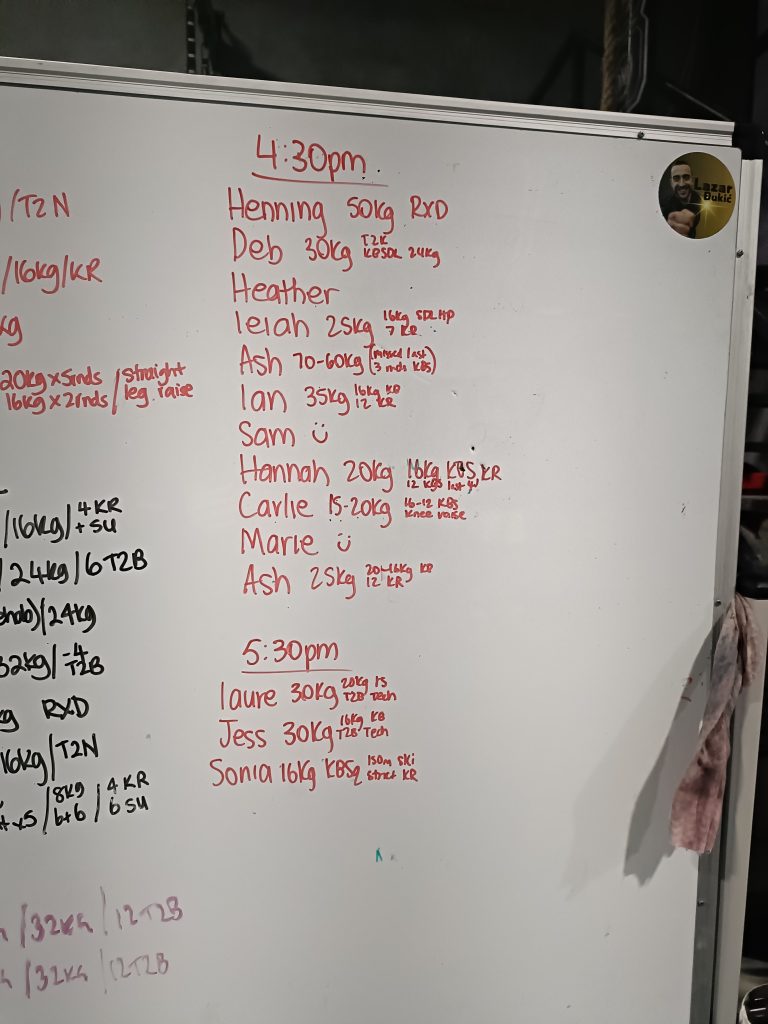 /T2N
/16kg/KR
kg
20kg x 5rnds / straight
16kg x 2rnds / leg raise
/16kg/ 4 KR
+ SU
/ 24kg / 6 T2B
/24kg
32kg/ -4
T2B
kg RXD
16kg/T2N
x5 / 8kg / 4 KR
6+6 / 6 SU
/32KG /12T2B
/32KG /12T2B
4:30pm
Henning 50kg RXD
Deb 30kg T2K
KBSDL 24kg
Heather
leiah 25kg 16kg SDLHP
7 KR
Ash 70-60kg (missed last
3 rnds KBS)
Ian 35kg 16kg KB
12 KR
Sam
Hannah 20kg 16kg KBS, KR
12 KBS last
Carlie 15-20kg 16-12 KBS
knee raise
Marie
Ash 25kg 20-16kg KB
12 KR
5:30pm
laure 30kg 20kg
T2B Tech
Jess 30kg 16kg KB
T2B Tech
Sonia 16kg KBSq 150m Ski
strict KR
Lazar
Đukić